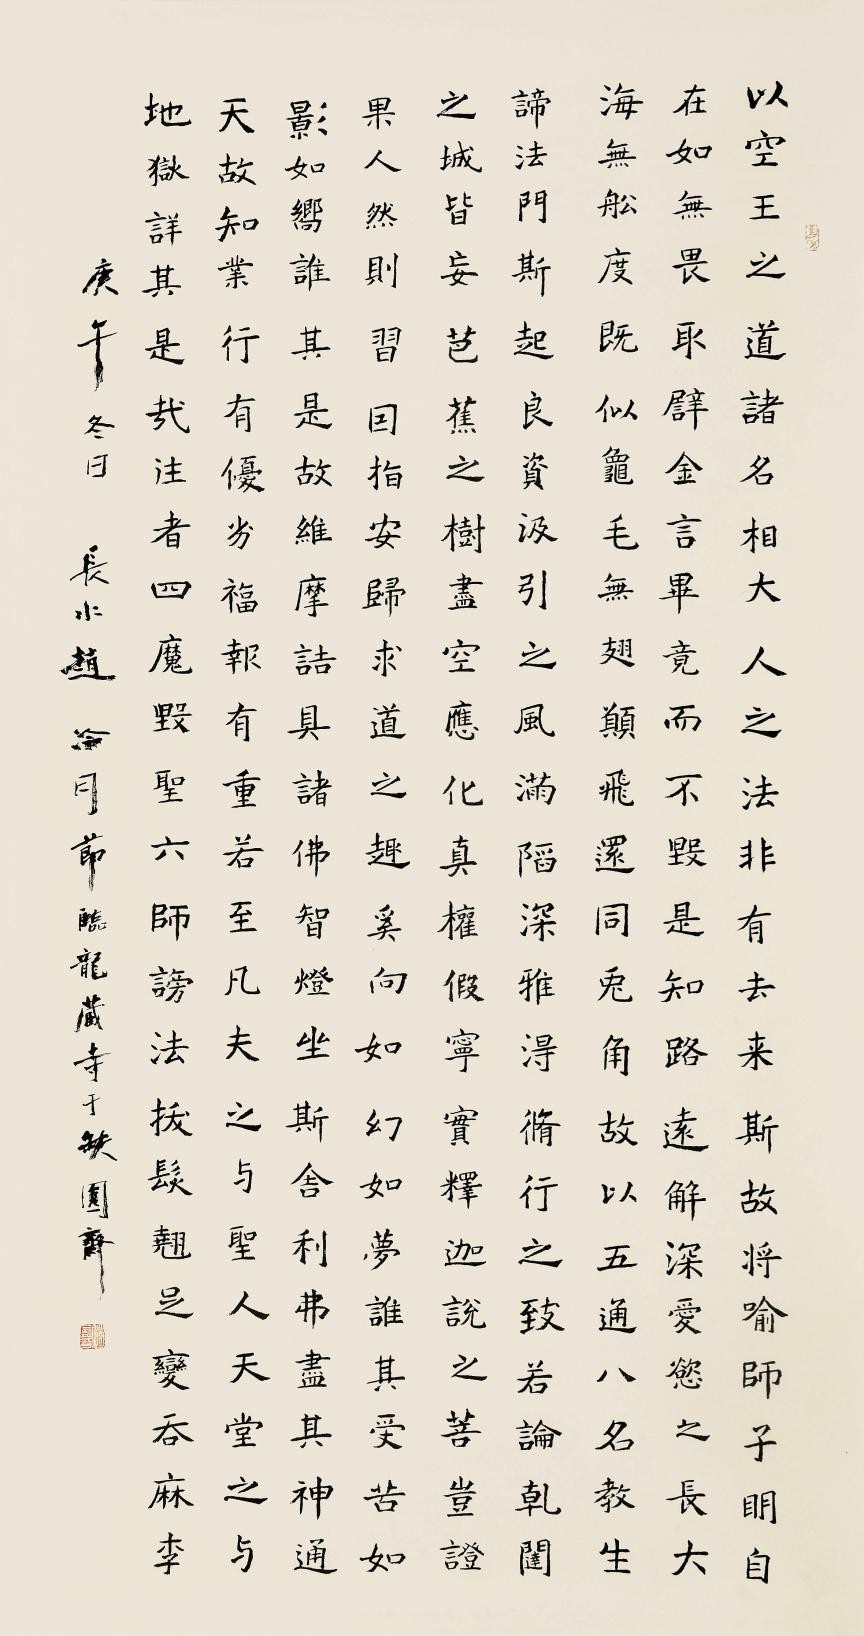 以空王之道諸名相大人之法非有去来斯故将喻師子明自
在如無畏取辟金言畢竟而不毀是知路遠解深愛慾之長大
海無舩度既似龜毛無翅顛飛還同兎角故以五通八名教生
諦法門斯起良資汲引之風滿蹈深雅淂脩行之致若論乹闥
之城皆妄芭蕉之樹盡空應化真權假寧實釋迦說之菩豈證
果人然則習因指安歸求道之趣奚向如幻如夢誰其受苦如
影如嚮誰其是故維摩詰具諸佛智燈坐斯舍利弗盡其神通
天故知業行有優劣福報有重若至凡夫之与聖人天堂之与
地獄詳其是㢤注者四魔毀聖六師謗法拔髮翹足變吞麻李
庚午冬日 長水趙冷月節臨龍藏寺于缺圓齋